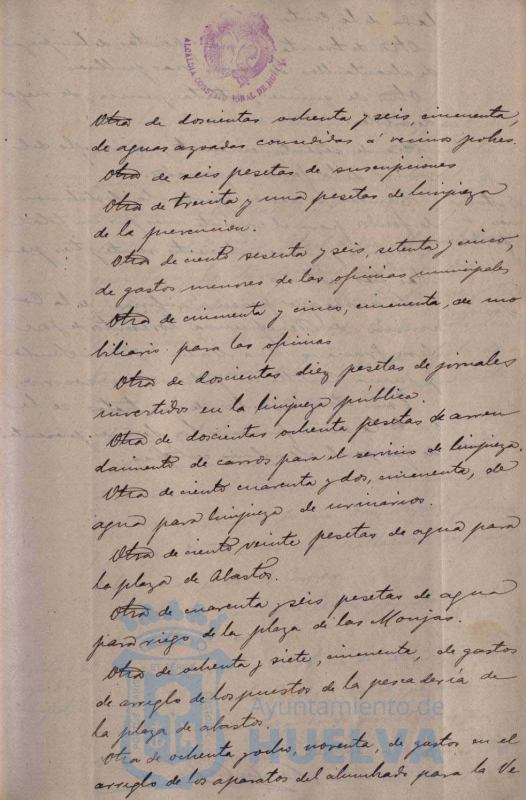 ALCALDIA CONSTITUCIONAL DE HUELVA
Otra de doscientas ochenta y seis, cincuenta,
de aguas azoadas concedidas á vecinos pobres.
Otra de seis pesetas de suscripciones
Otra de treinta y una pesetas de limpieza
de la prevencion.
Otra de ciento sesenta y seis, setenta y cinco,
de gastos menores de las oficinas municipales
Otra de cincuenta y cinco, cincuenta, de mo
biliario para las oficinas
Otra de doscientas diez pesetas de jornales
invertidos en la limpieza pública.
Otra de doscientas ochenta pesetas de arren
damiento de carros para el servicio de limpieza.
Otra de ciento cuarenta y dos, cincuenta, de
agua para limpieza de urinarios.
Otra de ciento veinte pesetas de agua para
la plaza de Abastos.
Otra de cuarenta y seis pesetas de agua
para riego de la plaza de las Monjas.
Otra de ochenta y siete, cincuenta, de gastos
de arreglo de los puestos de la pescadería de
la plaza de abastos.
Otra de ochenta y ocho, noventa, de gastos en el
arreglo de los aparatos del alumbrado para la Ve
Ayuntamiento de
HUELVA